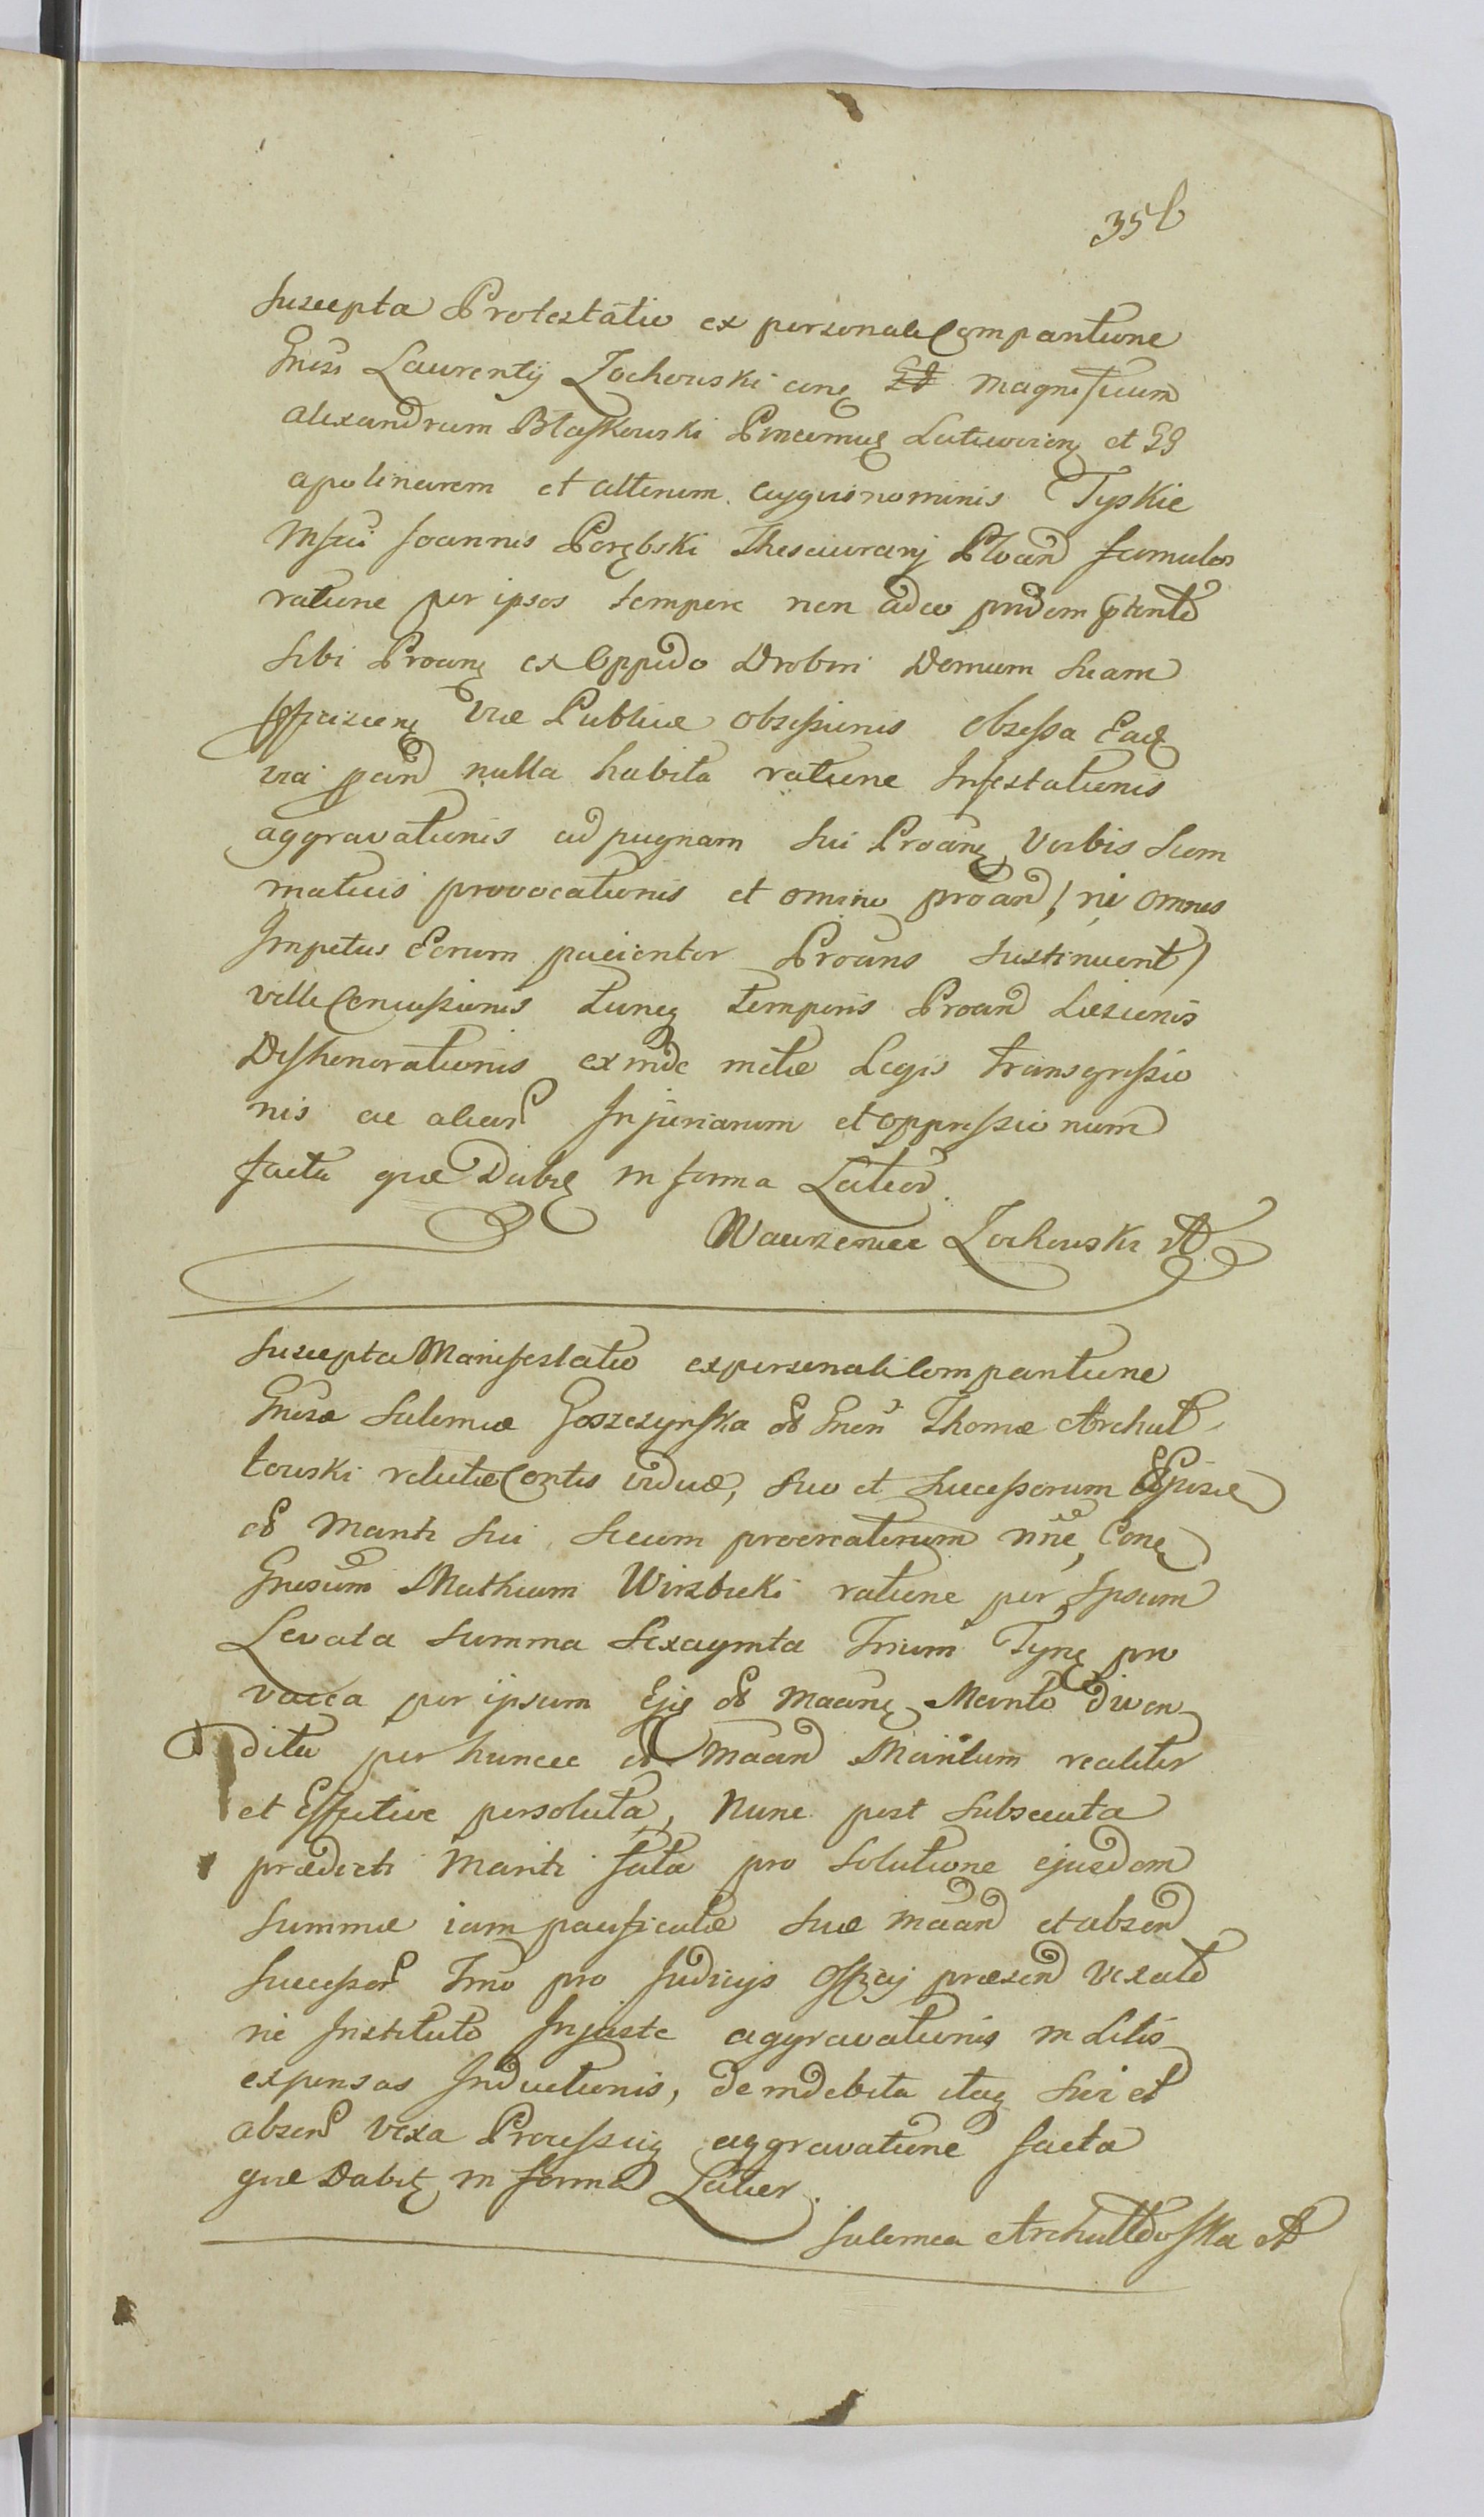 356
Suscepta Protestatio ex personali Comparitione
Gnosi Laurentij Zochowski cone Magnificum
Alexandrum Błaszkowski Pincernus Latiwicien et GG
Apolinarem et alterum cujusnominis Tyskie
Mfici Joannis Porębski Thesaurarij Ploceñ famulos
ratione per ipsos tempore non adeo pridem
sibi Proañ ex Oppido Drobin Domum suam
viæ Publicæ obsessionis obsessa Eaq
via nulla habita ratione Infestationis
aggravationis ad pugnam sui Proañ Verbis Som
maticis provocationis et omino proañ / ni omnes
Impetus Eorum pacienter Proans sustinuent /
velle Concussionis tuncq temporis Proañ Læsionis
Dishonorationis exinde Legis transgressio
nis ac aliar Injuriarum et oppressionum
facta quæ Dabit in forma Latior.
Wawrzeniec Zochowski
Suscepta Manifestatio ex personali Comparitione
Gnosæ Salomeæ Goszczynska olim Gnosi Thomæ Archut
towski relictæ Cortis viduæ, suo et successorum
olim Mariti sui secum procreatorum nñe, Cone
Gnosum Mathiam Wirzbicki ratione per Ipsum
Levata summa sexaginta Trium Tyn pro
vacca per ipsum Ejus olim Maane Marito diven
dita per huncce olim Maañ Maritum realiter
et Effective persoluta, Nunc post subsecuta
prædicti Mariti fata pro solutione ejusdem
summæ iam pacificatæ suæ Maañ et absen
successor Imo pro Judicijs Offcij præsen Vexat
nie Instituto Injuste aggravationis in Litis
expensas Inductionis, de indebita itaq sui et
absen vexa Processuq aggravatione facta
quæ Dabit in forma Latior.
Salomea Archuttowska